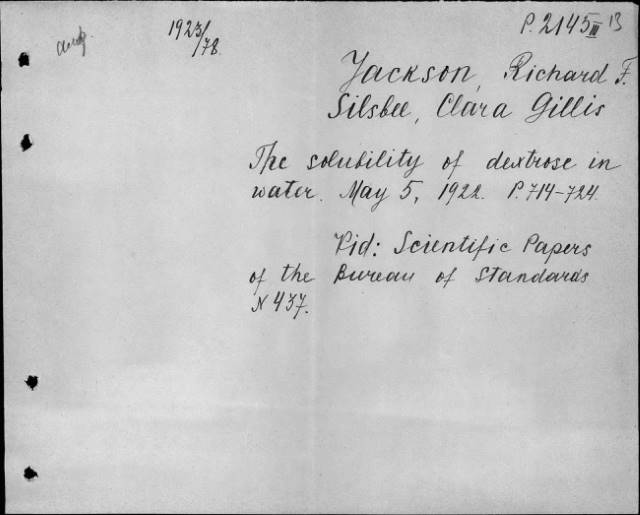 1923/78.
P. 2145 III B
Jackson, Richard F.
Silsbee, Clara Gillis
The solubility of dextrose in
water. May 5, 1922. P. 714-724.
Vid: Scientific Papers
of the Bureau of Standards
N 437.